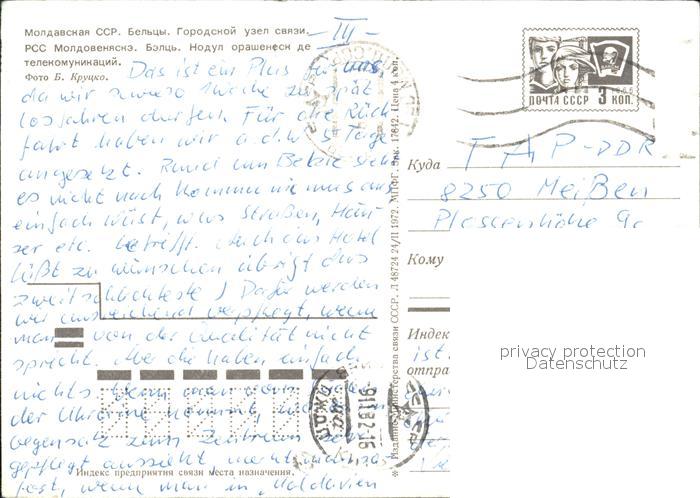 Молдавская ССР. Бельцы. Городской узел связи.
РСС Молдовеняскэ. Бэлць. Нодул орашенеск де
телекомуникаций.
Фото Б. Круцко.
- III -
Das ist ein Plus für uns,
da wir sowieso 1 Woche zu spät
losfahren durften. Für die Rück-
fahrt haben wir a.d.W. 5 Tage
angesetzt. Rund um Belzie sieht
es nicht nach Kommunismus aus
einfach wüst, was Straßen, Häu-
ser etc. betrifft. Auch das Hotel
läßt zu wünschen übrig (das
zweitschlechteste) Dafür werden
wir ausreichend verpflegt, wenn
man von der Qualität nicht
spricht. Aber die haben einfach
nichts. Wenn man von
der Ukraine kommt,
Gegensatz zum Zentrum
gepflegt aussieht, merkt man
fast, wenn man in Moldavien
Индекс предприятия связи места назначения.
* Издание Министерства связи СССР. Л 48724 24/II 1972. МПФГ. Зак. 17642. Цена 4 коп.
ПОЧТА СССР 3 КОП.
Куда
ГДР-DDR
8250 Meißen
Plossenhöhe 9c
Кому
Индекс
отпра
ist
privacy protection
Datenschutz